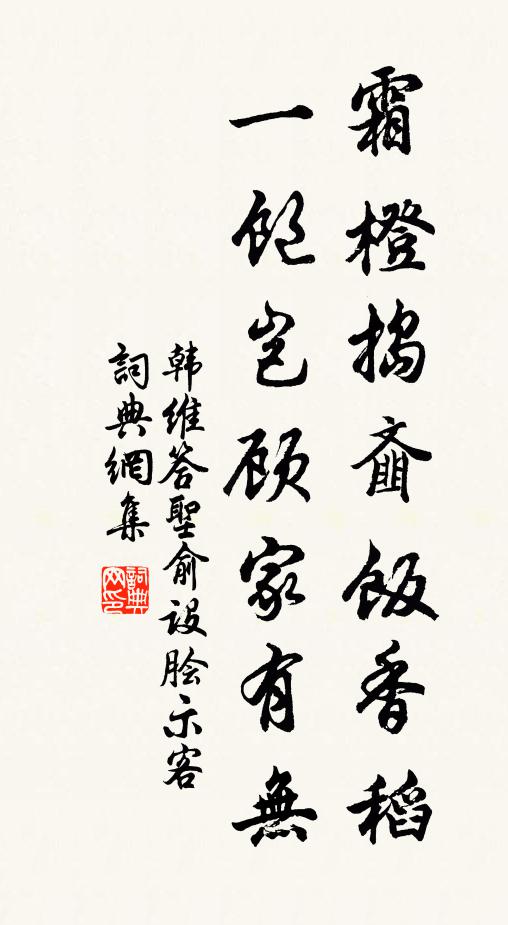 霜橙捣齑饭香稻
一饱岂顾家有無
韩维答聖俞设脍示客
詞典網集
詞典网印